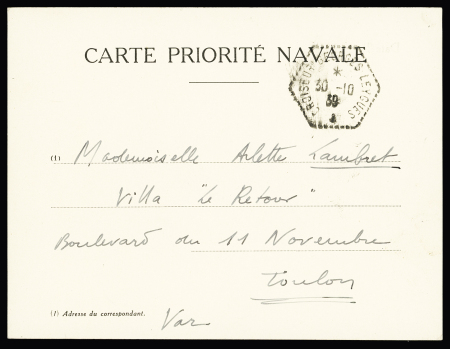 CARTE PRIORITÉ NAVALE
CROISEUR GEORGES LEYGUES
*
30 -10
39
(1) Mademoiselle Arlette Lambret
Villa "Le Retour"
Boulevard du 11 Novembre
Toulon
(1) Adresse du correspondant.
Var